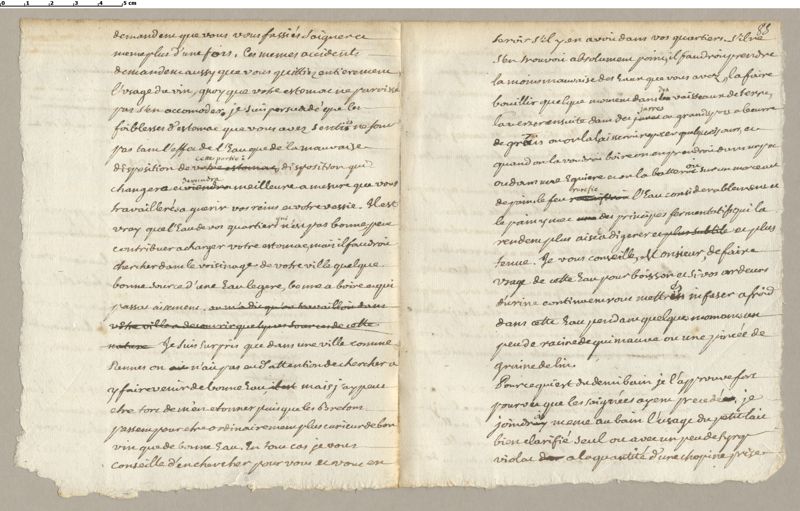 0 1 2 3 4 5 cm
demandent que vous vous fassiés saigner et
meme plus d'une fois. Ces memes accidents
demandent aussy que vous quittiez entierement
l'usage du vin, quoy que votre estomac ne put
pas s'en accomoder, je suis persuadé que les
foiblesses d'estomac que vous avez senties ne sont
pas tant l'effet de l'Eau que de la mauvaise
cette partie
disposition de votre estomac, disposition qui
deviendra
changera et viendra meilleure a mesure que vous
travaillerés a guerir vos reins et votre vessie. Il est
vray que l'Eau de vos quartiers n'est pas bonne peut
contribuer a charger votre estomac, mais il faudroit
chercher dans le voisinage de votre ville quelque
bonne source d'une Eau legere, bonne a boire et qui
passat aisement. on m'a dit qu'on travailloit dans
votre ville a decouvrir quelques sources de cette
nature Je suis surpris que dans une ville comme
Rennes on n'ait pas eu d'attention de chercher a
y faire venir de bonne Eau, mais j'ay peut
etre tort de m'en etonner puis que les Bretons
passent pour etre ordinairement plus curieux de bon
vin que de bonne Eau. En tout cas je vous
conseille d'en chercher pour vous et vous en
88
servir s'il y en avoit dans vos quartiers. S'il ne
s'en trouvoit absolument point, il faudroit prendre
la moins mauvaise des Eaux que vous avez, la faire
bouillir quelque moment dans vaisseaux de terre,
la verser ensuite dans des jarres ou grands pots a beurre
de grais ou on la laisseroit reposer quelques jours, et
quand on la voudroit boire on en prendroit dans un pot
ou dans une Eguiere et on la battroit sur un morceau
de pain, le feu rarefie l'Eau considerablement et
le pain y met des principes fermentatifs qui la
rendent plus aisée a digerer et plus subtile et plus
tenue. Je vous conseille, Monsieur, de faire
usage de cette Eau pour boisson et si vos ardeurs
d'urine continuent vous mettrés infuser a froid
dans cette Eau pendant quelques momens un
peu de racine de guimauve ou une pincée de
graine de lin.
Pour ce qui est du demi bain je l'approuve fort
pourvu que les saignées ayent precedé, je
joindrois meme au bain l'usage du petit lait
bien clarifié seul ou avec un peu de syrop
violat a la quantité d'une chopine prise